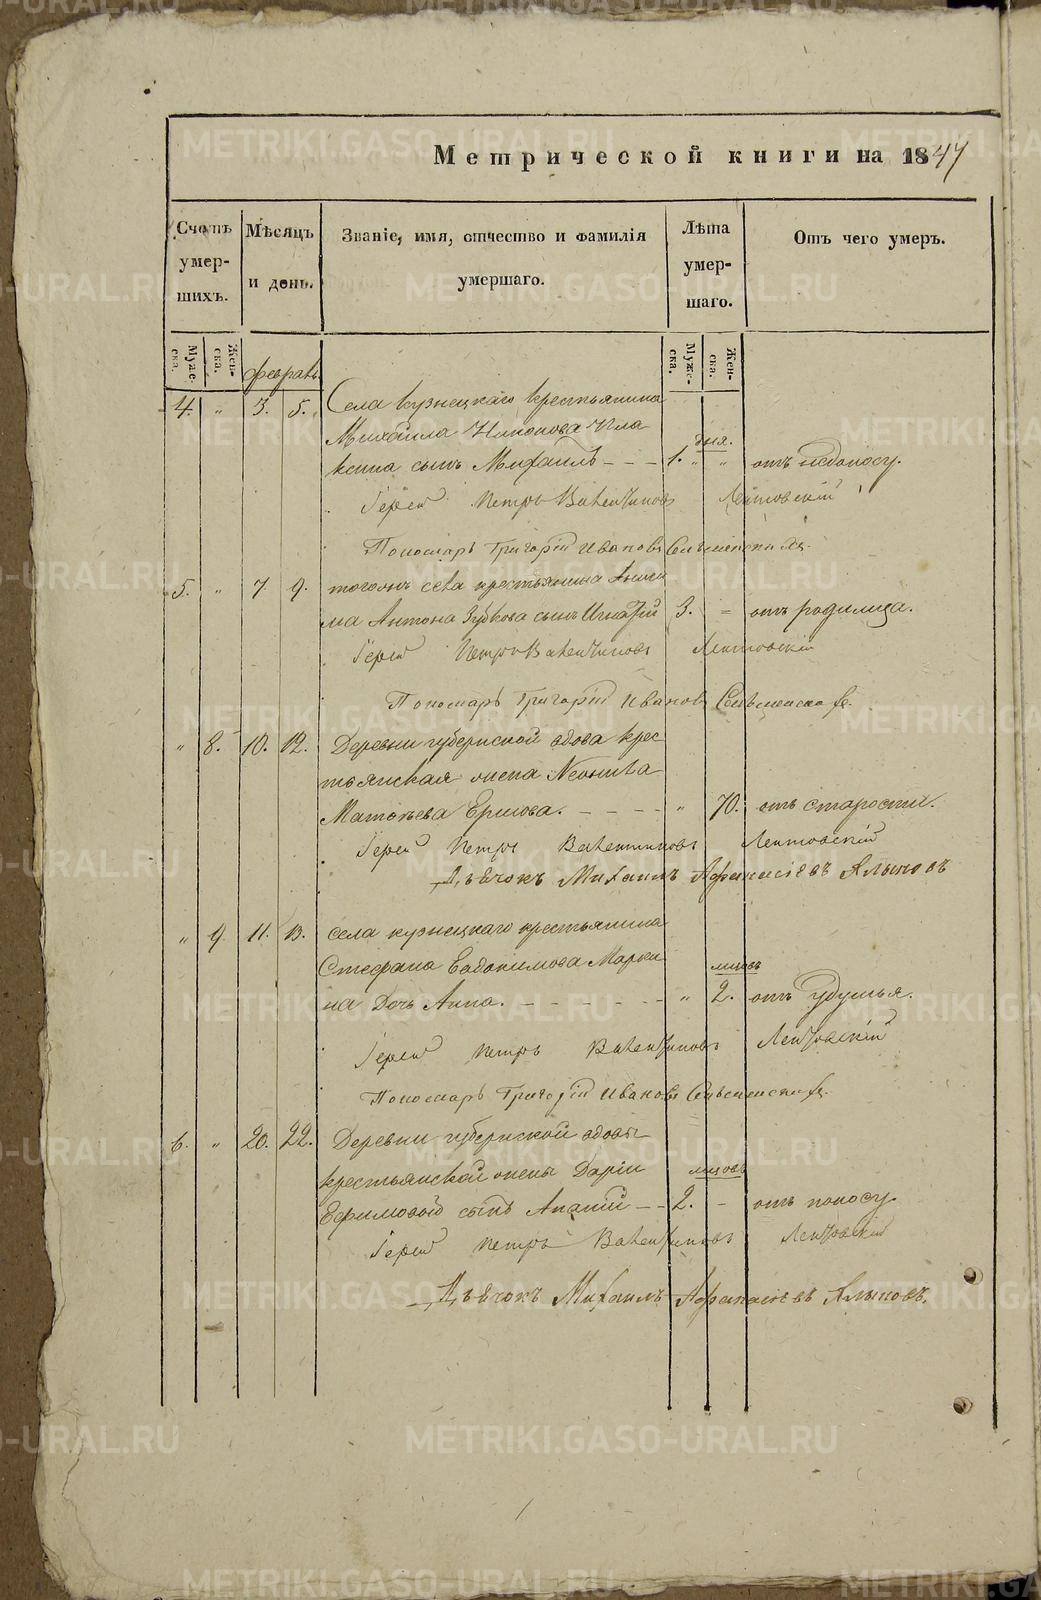 Метрической книги на 1847
Счетъ умер-шихъ.
Мѣсяцъ и день.
Званіе, имя, отчество и фамилія умершаго.
Лѣта умер-шаго.
Отъ чего умеръ.
Муже-ска.
Жен-ска.
Муже-ска.
Жен-ска.
февраль
4. " 3. 5. Села кузнецкаго крестьянина
Михаила Никонова
дня.
сынъ Михаилъ - - - 1. " " отъ недоносу.
Іерей Петръ Валентиновъ Лентовскій
Пономарь Григорій Ивановъ
5. " 7. 9. тогожъ села крестьянина
Антона Зубкова сынъ Игнатій 3. = отъ родимца.
Іерей Петръ Валентиновъ Лентовскій
Пономарь Григорій Ивановъ
" 8. 10. 12. Деревни губернской вдова крес
тьянская жена Неонила
Матвѣева Ершова. - - - - " 70. отъ старости.
Іерей Петръ Валентиновъ Лентовскій
Дьячокъ Михаилъ Афанасіевъ Алыповъ
" 9. 11. 13. села кузнецкаго крестьянина
Стефана Евдокимова Марки
мѣсяцъ
на Дочь Анна. - - - - - - " 2. отъ удушья.
Іерей Петръ Валентиновъ Лентовскій
Пономарь Григорій Ивановъ
6. " 20. 22. Деревни губернской вдовы
крестьянской жены Даріи
мѣсяцъ
Ефимовой сынъ Ананій - - 2. - отъ поносу.
Іерей Петръ Валентиновъ Лентовскій
Дьячокъ Михаилъ Афанасіевъ Алыповъ.
METRIKI.GASO-URAL.RU